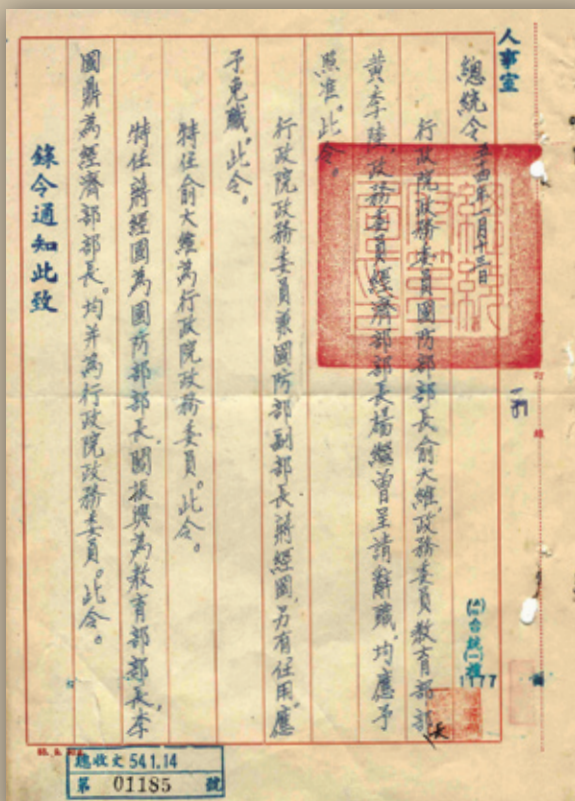 人事室
總統令 五十四年一月十三日
行政院政務委員國防部部長俞大維、政務委員教育部部長
黃季陸、政務委員經濟部部長楊繼曾呈請辭職，均應予
照准。此令。
行政院政務委員兼國防部副部長蔣經國另有任用，應
予免職。此令。
特任俞大維為行政院政務委員。此令。
特任蔣經國為國防部部長，閻振興為教育部部長，李
國鼎為經濟部部長。均并為行政院政務委員。此令。
錄令通知此致
台統(一)
1177
號
訂
線
總收文 54.1.14
第 01185 號